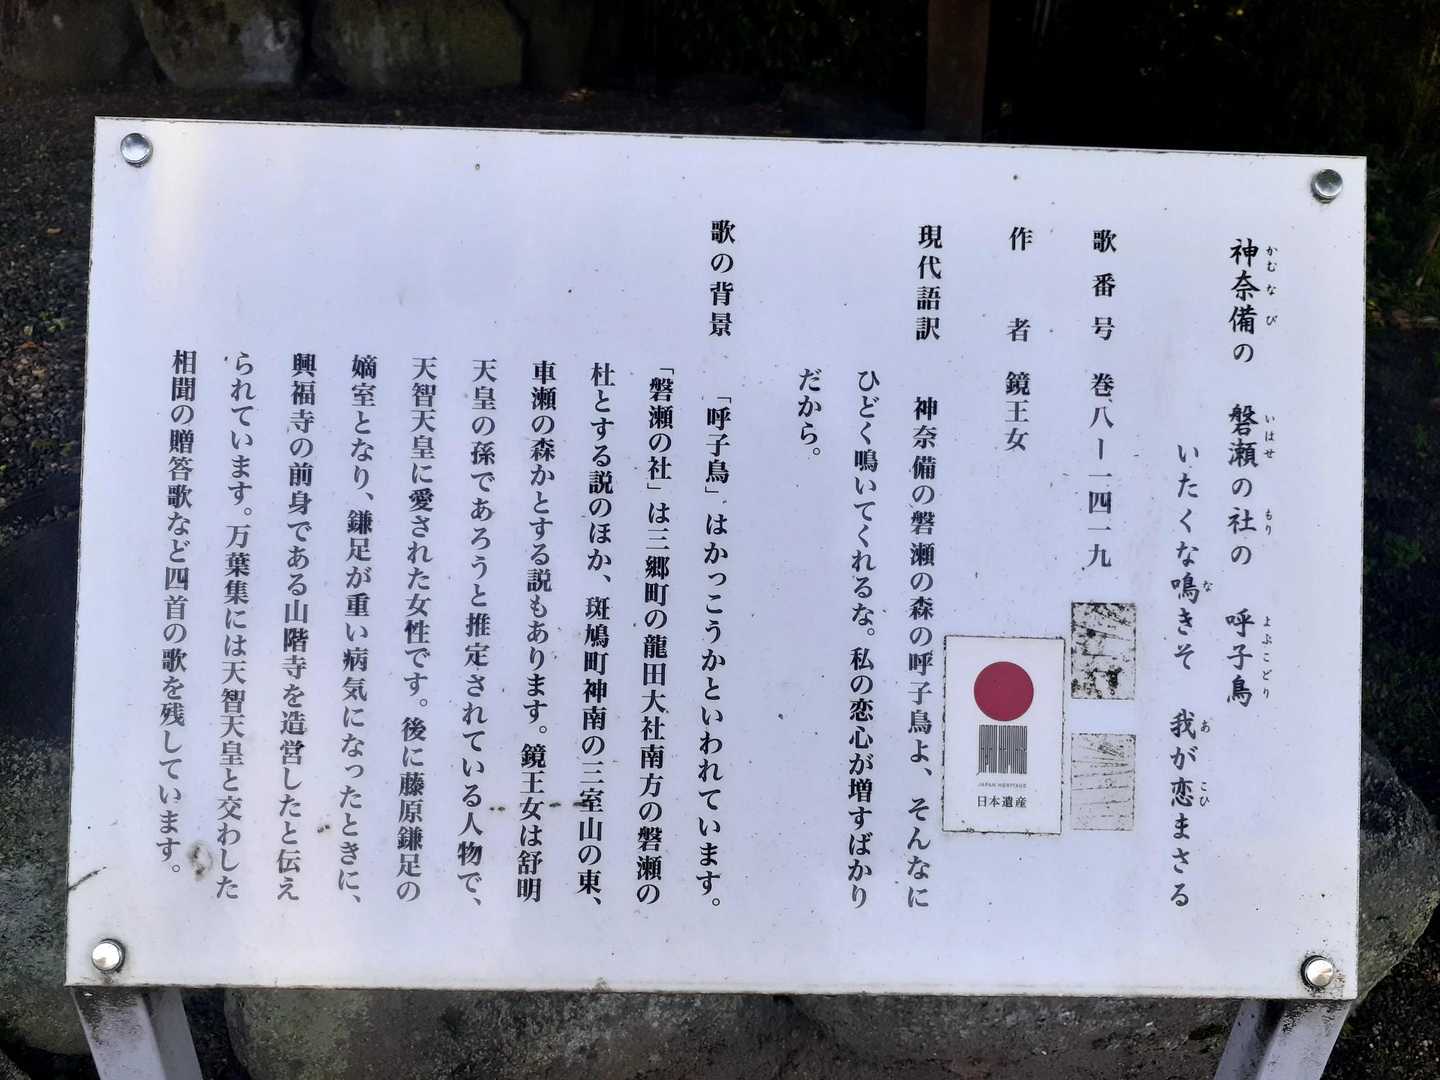 神奈備の　磐瀬の社の　呼子鳥
かむなび　いはせ　もり　よぶこどり
いたくな鳴きそ　我が恋まさる
な　あ　こひ
歌番号　巻八ー一四一九
作者　鏡王女
現代語訳　神奈備の磐瀬の森の呼子鳥よ、そんなに
ひどく鳴いてくれるな。私の恋心が増すばかり
だから。
歌の背景　「呼子鳥」はかっこうかといわれています。
「磐瀬の社」は三郷町の龍田大社南方の磐瀬の
杜とする説のほか、斑鳩町神南の三室山の東、
車瀬の森かとする説もあります。鏡王女は舒明
天皇の孫であろうと推定されている人物で、
天智天皇に愛された女性です。後に藤原鎌足の
嫡室となり、鎌足が重い病気になったときに、
興福寺の前身である山階寺を造営したと伝え
られています。万葉集には天智天皇と交わした
相聞の贈答歌など四首の歌を残しています。
JAPAN HERITAGE
日本遺産